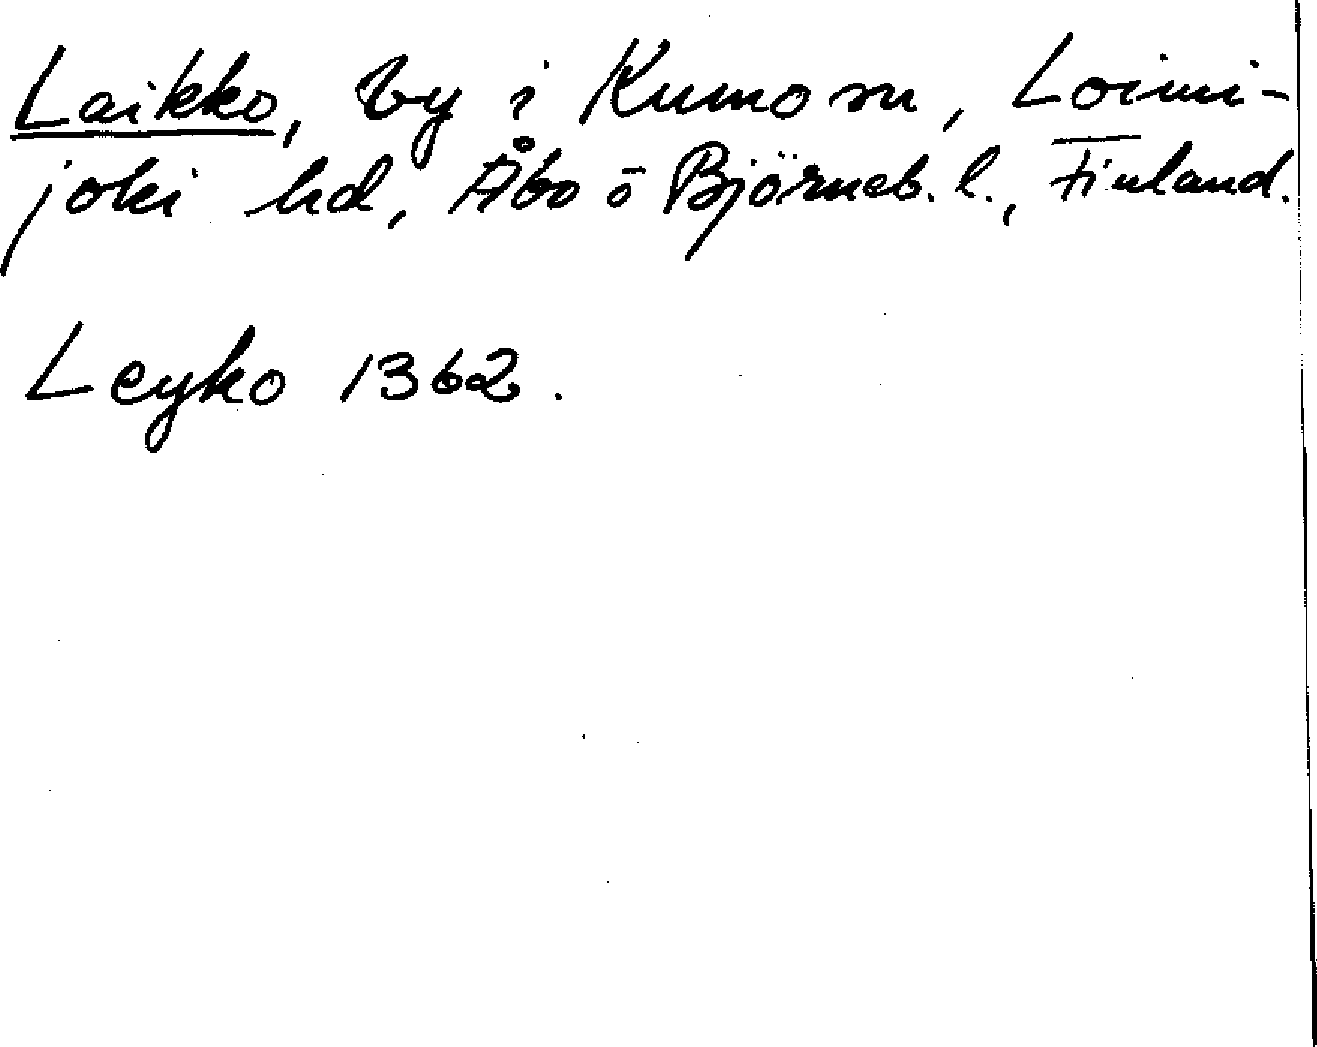 Laikko, by i Kumo sn, Loimi-
joki hd, Åbo o Björneb. l., Finland.
Leyko 1362.